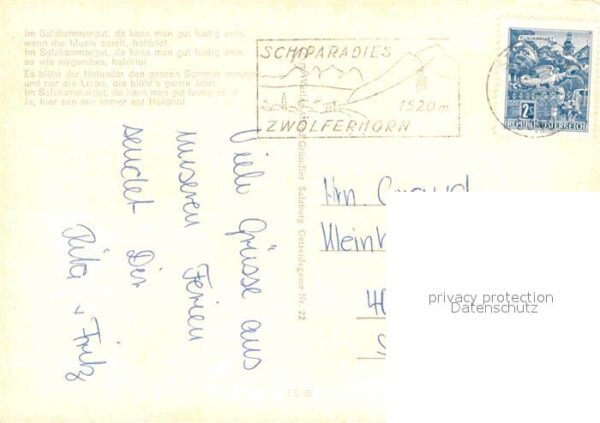 Im Salzkammergut, da kann man gut lustig sein,
wenn die Musik spielt, holdrio!
Im Salzkammergut, da kann man gut lustig sein,
so wie nirgendwo, holdrio!
Es blüht der Holunder den ganzen Sommer
und nur die Liebe, die blüht's ganze Jahr!
Im Salzkammergut, da kann man gut lustig sein
Ja, hier san mir immer so! Holdrio!
SCHIPARADIES
1520 m
ZWÖLFERHORN
2 S
REPUBLIK ÖSTERREICH
Gründler Salzburg Getreidegasse Nr. 22
Viele Grüsse aus
unseren Ferien
sendet Dir
Rita + Fritz
Hrn.
privacy protection
Datenschutz